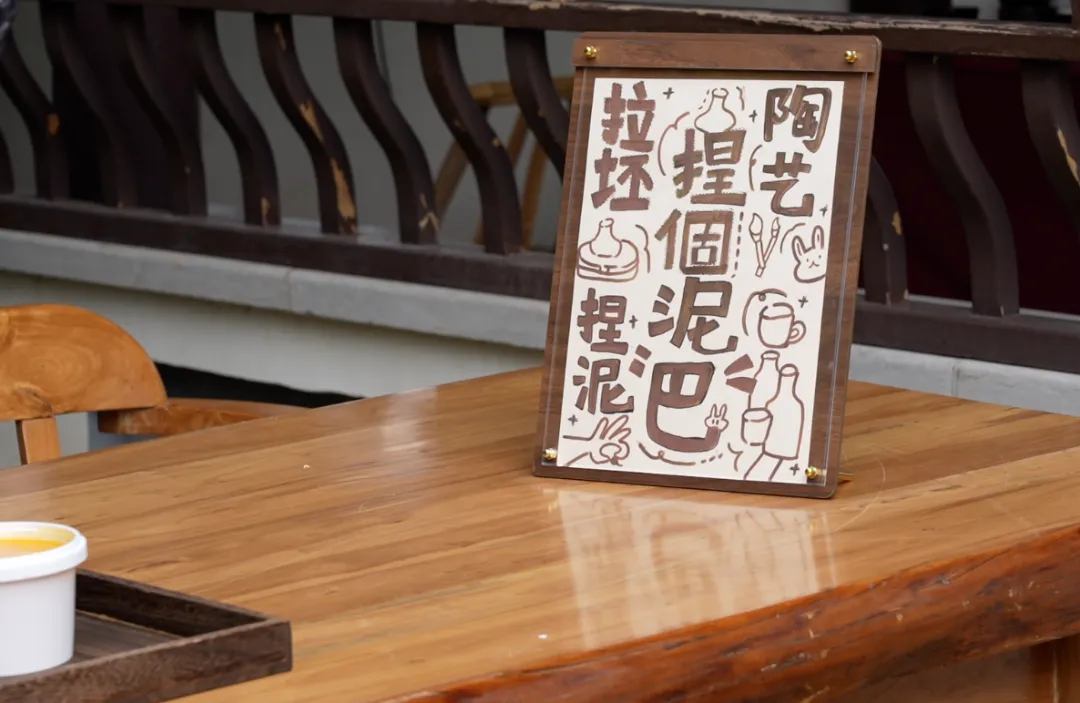 陶艺
捏個泥巴
拉坯
捏泥